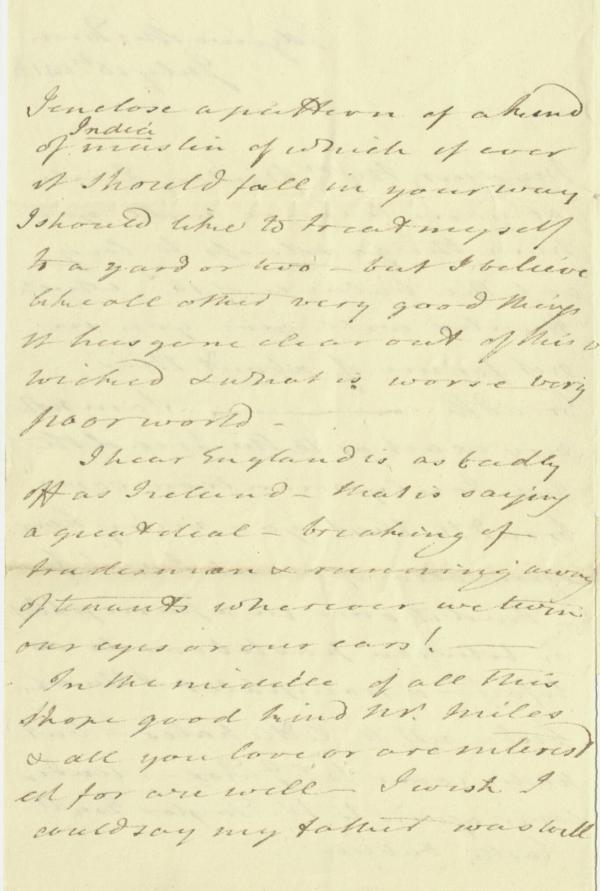 I enclose a pattern of a kind
India
of muslin of which if ever
it should fall in your way
I should like to treat myself
to a yard or two – but I believe
like all other very good things
it has gone clear out of this
wicked & what is worse very
poor world –
I hear England is as badly
off as Ireland – that is saying
a great deal – breaking of
tradesmen & running away
of tenants wherever we turn
our eyes or our ears! —
In the middle of all this
I hope good kind Mr. Miles
& all you love or are interest
ed for are well – I wish I
could say my father was well